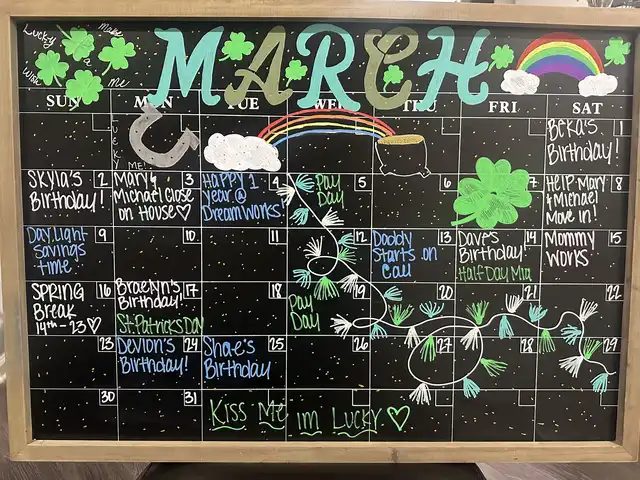 Lucky Make
a
Wish Me
MARCH
SUN MON TUE WED THU FRI SAT
LUCKY
ME!
Beka's 1
Birthday!
Skyla's 2
Birthday!
Mary & 3
Michael Close
on House♡
Happy 1 4
year @
DreamWorks!
Pay 5
Day
6
7
Help Mary 8
& Michael
Move in!
Day Light 9
Savings
time
10
11
12
Daddy 13
Starts on
Call
Dave's 14
Birthday!
Half Day Mia
Mommy 15
Works
SPRING 16
Break
14th-23♡
Braelyn's 17
Birthday!
St. Patricks Day
18
Pay 19
Day
20
21
22
23
Devion's 24
Birthday!
Shae's 25
Birthday
26
27
28
29
30
31
Kiss Me im Lucky ♡